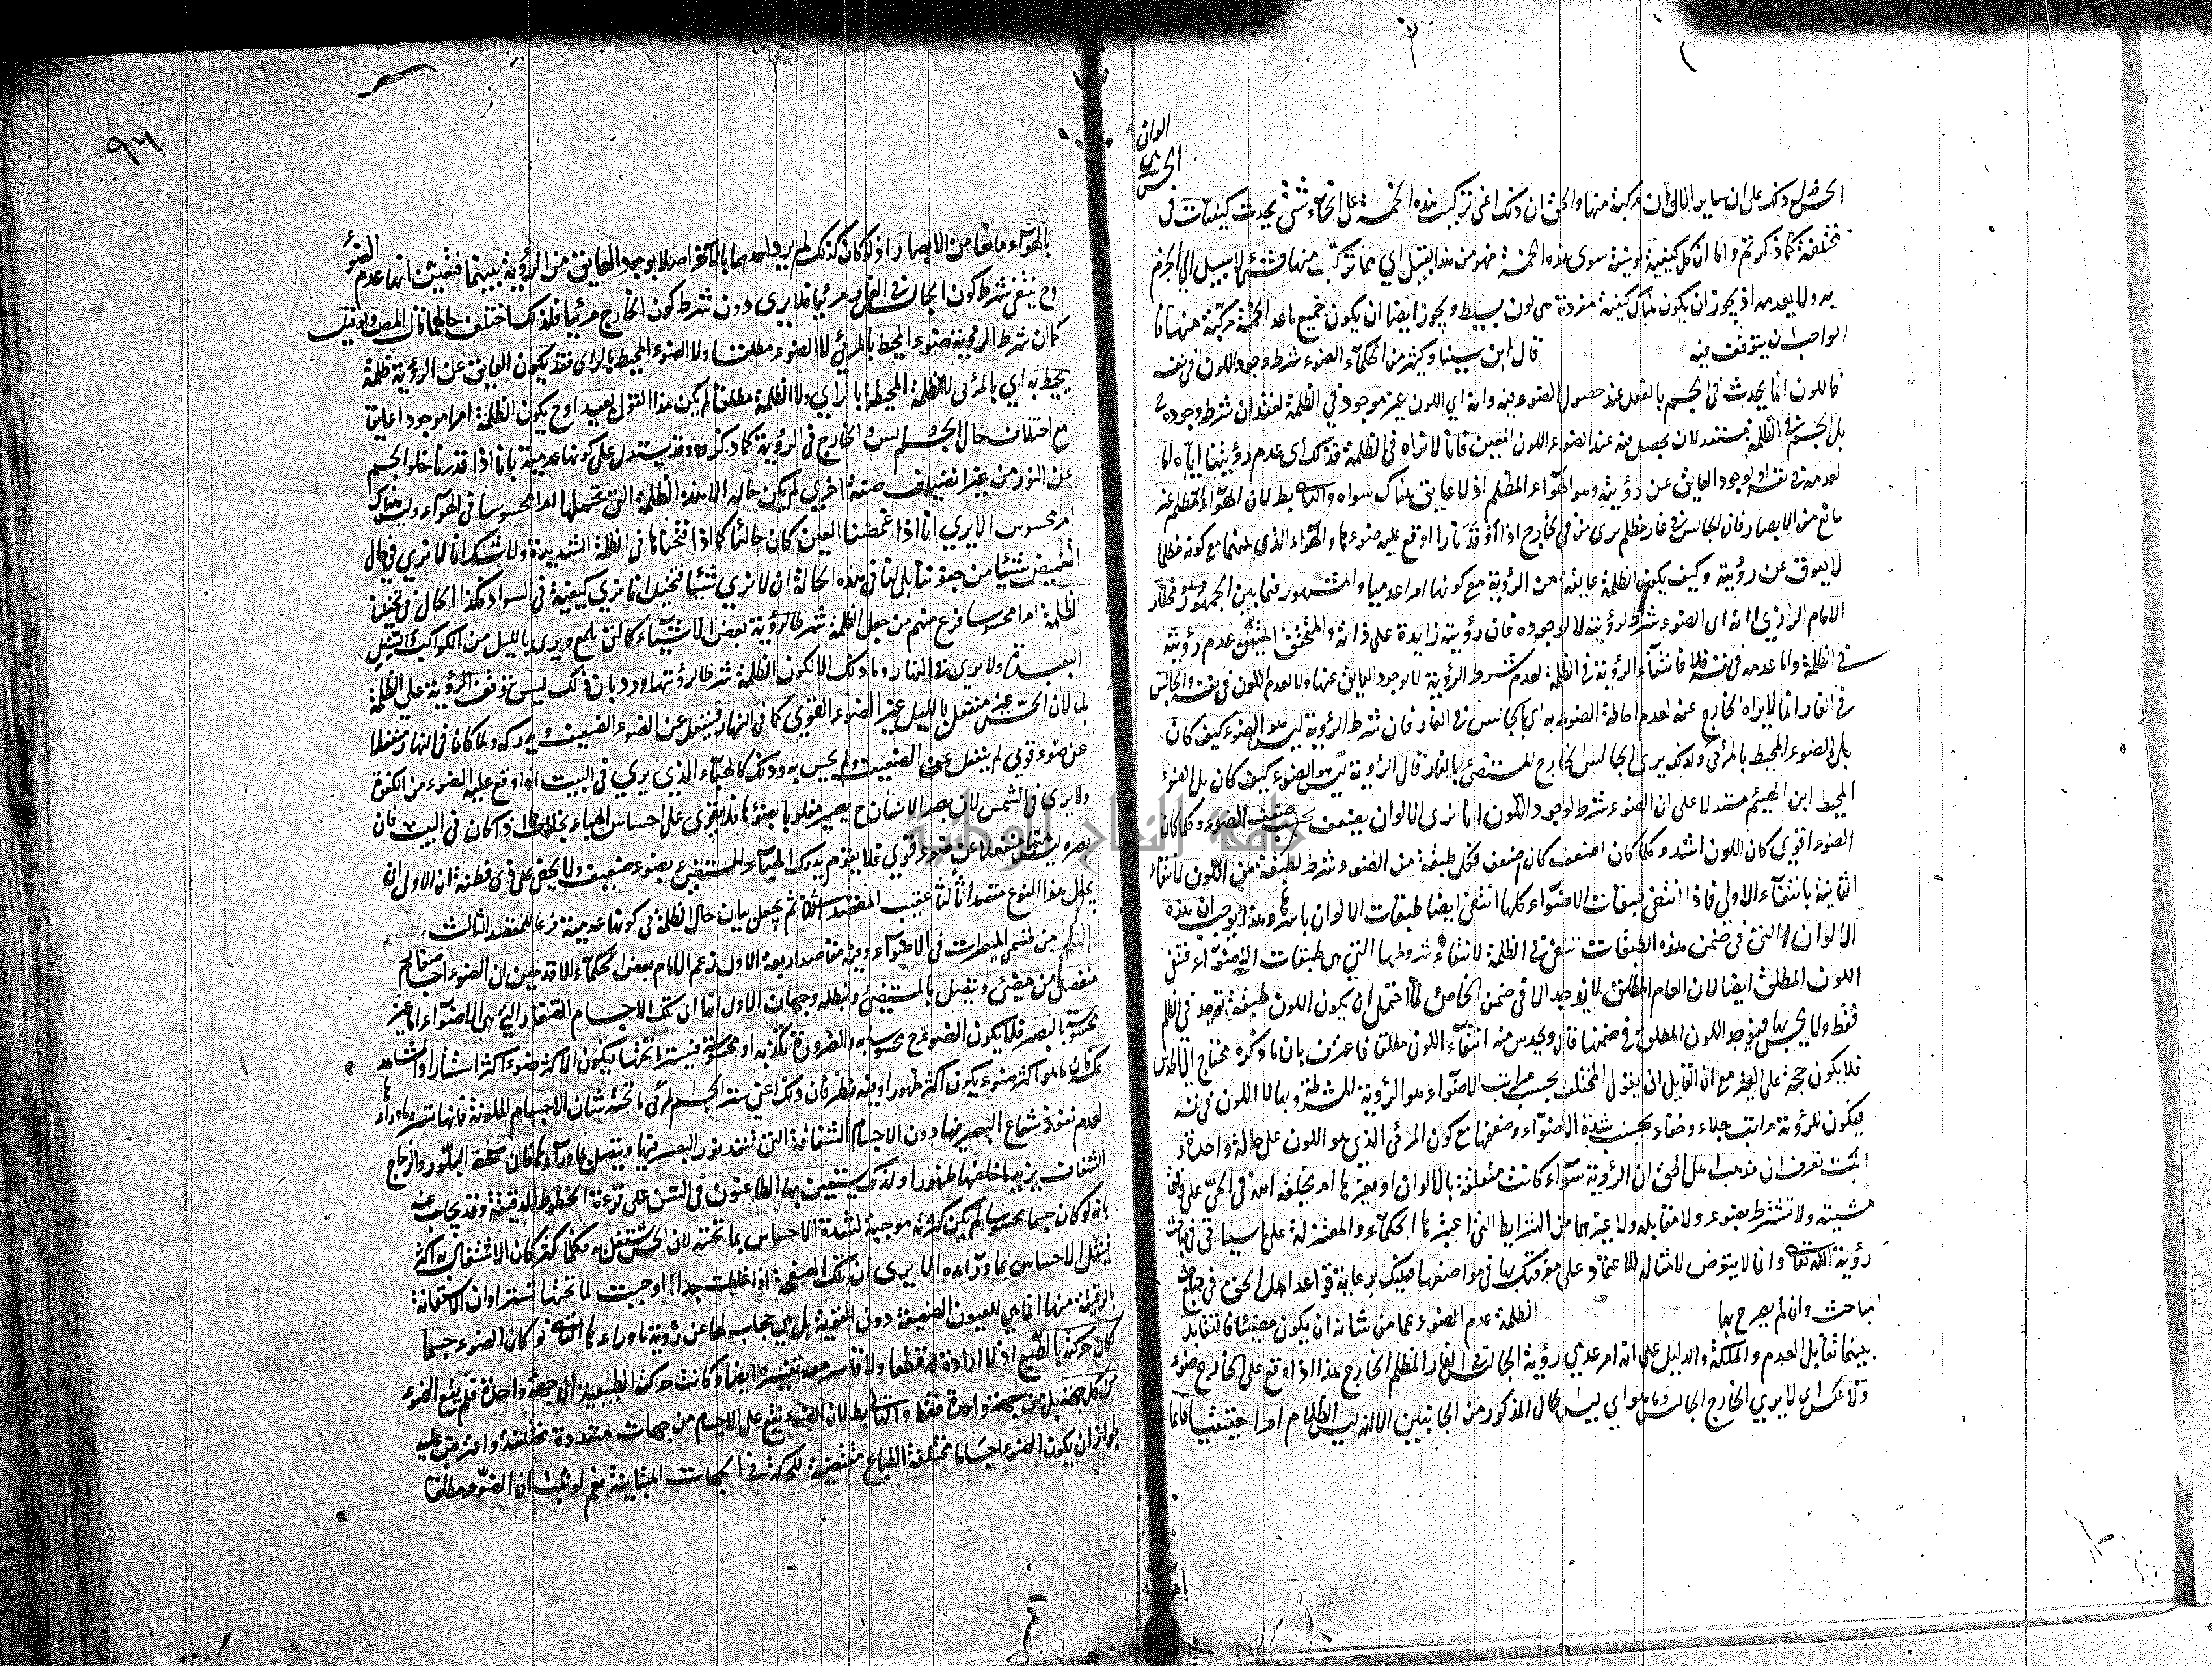 الوان
الحس
الخمس ودلك على ان ساير الالوان مركبة منها والحق ان ذلك اعنى تركيب هذه الخمسة على انحاء شتى يحدث كيفيات فى
مختلفة كما ذكرتم واما ان كل كيفية لونية سوى هذه الخمسة فهو من هذا القبيل اي مما تركب منها فشئ لا سبيل الى الجزم
به ولا بعدمه اذ يجوز ان يكون هناك كيفية مفردة هى لون بسيط ويجوز ايضا ان يكون جميع ماعدا الخمسة مركبة منها فا
الواجب ان يتوقف فيه قال ابن سينا وكثير من الحكماء الضوء شرط وجود اللون فى نفسه
فاللون انما يحدث فى الجسم بالفعل عند حصول الضوء فيه وانه اي اللون غير موجود في الظلمة لفقدان شرط وجوده
بل الجسم فى الظلمة مستعد لان يحصل فيه عند الضوء اللون المعين فانا لا نراه فى الظلمة فذلك اى عدم رؤيتنا اياه اما
لعدمه فى نفسه او لوجود العايق عن رؤيته وهو الهواء المظلم اذ لا عايق هناك سواه والثانى بط لان الهواء المظلم غير
مانع من الابصار فان الجالس فى غار مظلم يرى من فى الخارج اذا اوقد نارا اوقع عليه ضوءها والهواء الذى بينهما مع كونه مظلما
لا يعوق عن رؤيته وكيف يكون الظلمة عايقة من الرؤية مع كونها امرا عدميا والمشهور فيما بين الجمهور وهو مختار
الامام الرازي انه اى الضوء شرط لرؤيته لا لوجوده فان رؤيته زايدة على ذاته والمتحقق المتيقن عدم رؤيته
فى الظلمة واما عدمه فى نفسه فلا فانتفاء الرؤية فى الظلمة لعدم شرط الرؤية لا لوجود العايق عنها ولا لعدم اللون فى نفسه والجالس
فى الغار انما لا يراه الخارج عنه لعدم احاطة الضوء به اي بالجالس فى الغار فان شرط الرؤية ليس هو الضوء كيف كان
بل الضوء المحيط بالمرئى ولذلك يرى الجالس الخارج المستضئ بالنار قال الرؤية ليس هو الضوء كيف كان بل الضوء
المحيط ابن الهيثم مستدلا على ان الضوء شرط لوجود اللون انا نرى الالوان يضعف بحسب ضعف الضوء وكلما كان
الضوء اقوى كان اللون اشد وكلما كان اضعف كان اضعف فكل طبقة من الضوء شرط لطبقة من اللون لانتفاء
الثانية بانتفاء الاولى فاذا انتفى طبقات الاضواء كلها انتفى ايضا طبقات الالوان باسرها وهذا يوجب ان هذه
الالوان التى فى ضمن هذه الطبقات تنتفى فى الظلمة لانتفاء شروطها التى هى طبقات الاضواء فتنتفى
اللون المطلق ايضا لان العام المطلق لا يوجد الا فى ضمن الخاص لما احتمل ان يكون اللون طبقة توجد فى الظلمة
فقط ولا يحس بها فيوجد اللون المطلق فى ضمنها قال ويحدس منه انتفاء اللون مطلقا فاعترف بان ما ذكره محتاج الى الحدس
فلا يكون حجة على الغير مع ان القايل ان يقول المختلف بحسب مراتب الاضواء هو الرؤية المشروطة بها لا اللون فى نفسه
فيكون للرؤية مراتب جلاء وخفاء بحسب شدة الاضواء وضعفها مع كون المرئى الذى هو اللون على حالة واحدة
انت تعرف ان مذهب اهل الحق ان الرؤية سواء كانت متعلقة بالالوان او بغيرها امر يخلقه الله فى الحى على وفق
مشيته ولا تشترط بضوء ولا مقابلة ولا غيرهما من الشرايط التى اعتبرها الحكماء والمعتزلة على ما سياتى فى مباحث
رؤية الله تعالى وانما لا يتعرض لامثاله للاعتماد على معرفتك بها فى مواضعها فعليك برعاية قواعد اهل الحق فى جميع
المباحث وان لم يصرح بها الظلمة عدم الضوء عما من شانه ان يكون مضيئا فالتقابل
بينهما تقابل العدم والملكة والدليل على انه امر عدمي رؤية الجالس فى الغار المظلم الخارج هذا اذا وقع على الخارج ضوء
ولا عكس اى لا يري الخارج الجالس وما هو اي ليس الحال المذكور من الجانبين الا لانه ليس الظلام امرا حقيقيا قائما
٩٦
بالهواء مانعا من الابصار اذ لو كان كذلك لم ير واحد منهما بالآخر اصلا لوجود العايق من الرؤية بينهما فتبين انها عدم الضوء
وح ينتفى شرط كون الجالس فى الغار مرئيا فلا يرى دون شرط كون الخارج مرئيا فلذلك اختلف حالهما قال المصن ولو قيل
كما ان شرط الرؤية ضوء المحيط بالمرئي لا الضوء مطلقا ولا الضوء المحيط بالرائى فقد يكون العايق عن الرؤية ظلمة
يحيط به اي بالمرئى لا الظلمة المحيطة بالرائي ولا الظلمة مطلقا لم يكن هذا القول بعيدا وح يكون الظلمة امرا موجودا عايقا
مع اختلاف حال الجالس والخارج فى الرؤية كما ذكره وقد يستدل على كونها عدمية بانا اذا قدرنا خلو الجسم
عن النور من غير انضياف صفة اخري لم يكن حاله الا هذه الظلمة التى نتخيلها امرا محسوسا فى الهواء وليس هناك
امر محسوس الا يري انا اذا غمضنا العين كان حالنا كما اذا فتحناها فى الظلمة الشديدة ولا شك انا لا نري فى حال
التغميض شيئا من جفوننا بل لنا فى هذه الحالة ان لا نري شيئا فنتخيل انا نري كيفية فى السواد وكذا الحال فى تخيلنا
الظلمة امرا محسوسا فرع منهم من جعل الظلمة شرطا لرؤية بعض الاشياء كالتى تلمع ويرى بالليل من الكواكب والشعل
البعيدة ولا يرى فى النهار وما ذلك الا لكون الظلمة شرطا لرؤيتها ورد بان ذلك ليس لتوقف الرؤية على الظلمة
بل لان الحس غير منفعل بالليل عن الضوء القوي كما فى النهار فينفعل عن الضوء الضعيف ويدركه ولما كان فى النهار منفعلا
عن ضوء قوي لم ينفعل عن الضعيف ولم يحس به وذلك كالهباء الذي يري فى البيت اذا وقع عليه الضوء من الكوة
ولا يرى فى الشمس لان بصر الانسان ح يصير مغلوبا بضوءها فلا يقوى على احساس الهباء بخلاف ما اذا كان فى البيت فان
بصره ليس منفعلا عن ضوء قوي فلا يقوم يدرك الهباء المستضئ بضوء ضعيف ولا يخفى على ذى فطنة ان الاولى ان
يجعل هذا الفرع مقصدا ثالثا عقيب المقصد الثانى ثم يجعل بيان حال الظلمة فى كونها عدمية فرعا للمقصد الثالث
من قسمى المبصرات فى الاضواء وفيه مقاصد اربعة الاول زعم بعض الحكماء الاقدمين ان الضوء اجسام صغار
منفصل من المضئ ويتصل بالمستضئ ويبطله وجهان الاول انها اى تلك الاجسام الصغار التى هى الاضواء اما غير
محسوسة بالبصر فلا يكون الضوء ح محسوسا به والضرورة تكذبه او محسوسة فيستر ما تحتها فيكون الاكثر ضوء اكثر استتارا والمشاهد
عكسه فان ما هو اكثر ضوء يكون اكثر ظهورا وفيه نظر فان ذلك اعنى ستر الجسم المرئى ما تحته شان الاجسام الملونة فانها تستر ما وراءها
لعدم نفوذ شعاع البصر فيها دون الاجسام الشفافة التى تنفذ نور البصر فيها ويتصل بما وراءها فان صفحة البلور والزجاج
الشفاف يزيد ما خلفها ظهورا ولذلك يستعين بها الطاعنون فى السن على قراءة الخطوط الدقيقة وقد يجاب عنه
بانه لو كان جسما محسوسا لم يكن كثرته موجبة لشدة الاحساس بما تحته لان الحس يشتغل به فكلما كثر كان الاشتغال به اكثر
فيقل الاحساس بما وراءه الا يرى ان تلك الصفحة اذا غلظت جدا اوجبت لما تحتها تسترا وان الاستعانة
بالرقيقة منها انما هى للعيون الضعيفة دون القوية بل هى حجاب لها عن رؤية ما وراءها الثانى لو كان الضوء جسما
لكان حركته بالطبع اذ لا ارادة له قطعا ولا قاسر معه يقسره ايضا وكانت حركته الطبيعية الى جهة واحدة فلم يقع الضوء
من كل جهة بل من جهة واحدة فقط والثانى بط لان الضوء يقع على الاجسام من جهات متعددة مختلفة واعترض عليه
بجواز ان يكون الضوء اجساما مختلفة الطبايع مقتضية للحركة فى الجهات المتباينة نعم لو ثبت ان الضوء مطلقا